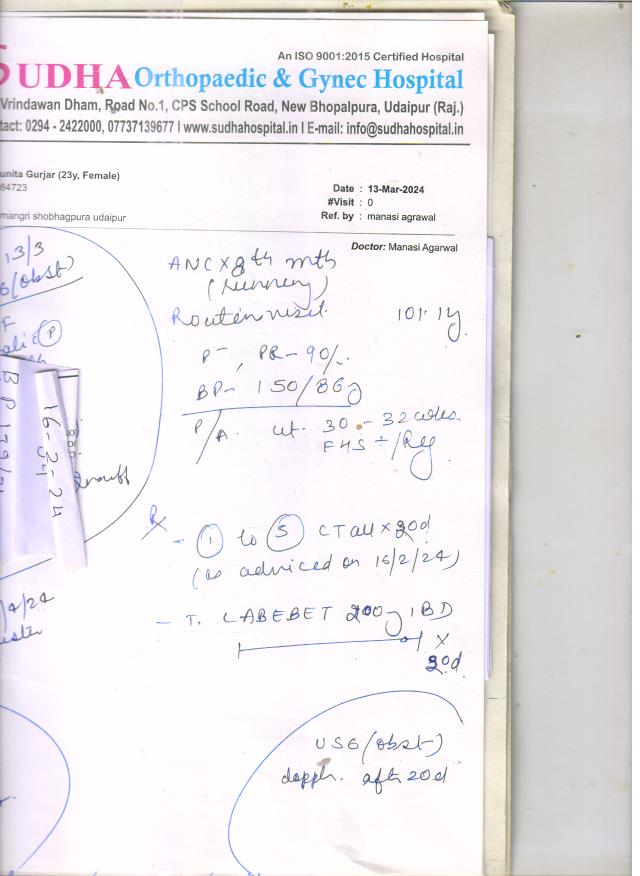 An ISO 9001:2015 Certified Hospital
SUDHA Orthopaedic & Gynec Hospital
Vrindawan Dham, Road No.1, CPS School Road, New Bhopalpura, Udaipur (Raj.)
tact: 0294 - 2422000, 07737139677 I www.sudhahospital.in I E-mail: info@sudhahospital.in
unita Gurjar (23y, Female)
84723
Date : 13-Mar-2024
#Visit : 0
mangri shobhagpura udaipur
Ref. by : manasi agrawal
Doctor: Manasi Agarwal
13/3
(obst)
P
16-2-24
/4/24
ANC x 8th mth
(running)
Routin visit.
P- , PR - 90/-.
BP - 150/86
P/A ut. 30 - 32 wks.
FHS + /Reg
Rx
- 1 to 5 CT all x 20d
(as adviced on 16/2/24)
- T. LABEBET 200 1 BD
x
20d.
USG (obst)
after 20d